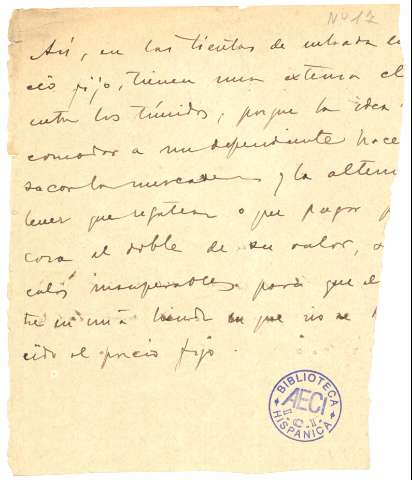 Nº 17
Así, en las tiendas de entrada
cio fijo, tienen una extensa cl
entre los tímidos, porque la idea
comodar a un dependiente hace
sacar la mercade y la altern
tener que regatear o que pagar p
cosa el doble de su valor,
culos insuperables para que e
tre en una tienda en que no se
cido el precio fijo.
BIBLIOTECA
AECI
HISPÁNICA